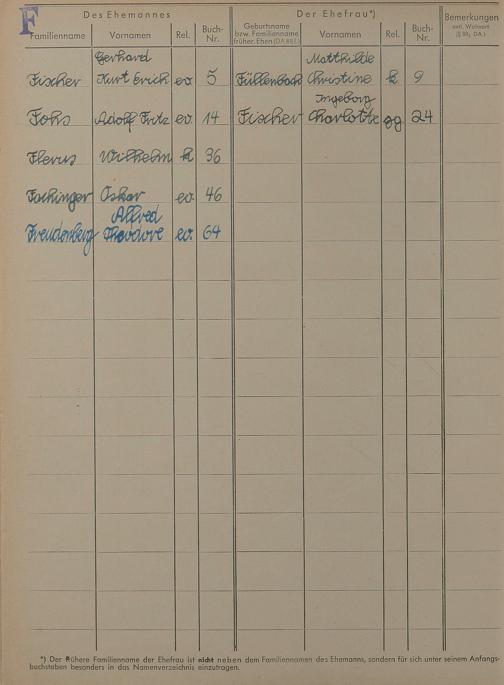 F
Des Ehemannes
Der Ehefrau*)
Bemerkungen
evtl. Wohnort
(§ 88, DA.)
Familienname
Vornamen
Rel.
Buch-
Nr.
Geburtsname
bzw. Familienname
früher. Ehen (DA 88 E.)
Vornamen
Rel.
Buch-
Nr.
Gerhard Matthilde
Fischer Kurt Erich ev 5 Füllenbach Christine k. 9
Ingeborg
Fohs Adolf Fritz ev. 14 Fischer Charlotte gg 24
Wilhelm k 36
Fachinger Oskar ev. 46
Alfred
Freudenberg Theodore ev. 64
*) Der frühere Familienname der Ehefrau ist nicht neben dem Familiennamen des Ehemanns, sondern für sich unter seinem Anfangs-
buchstaben besonders in das Namenverzeichnis einzutragen.